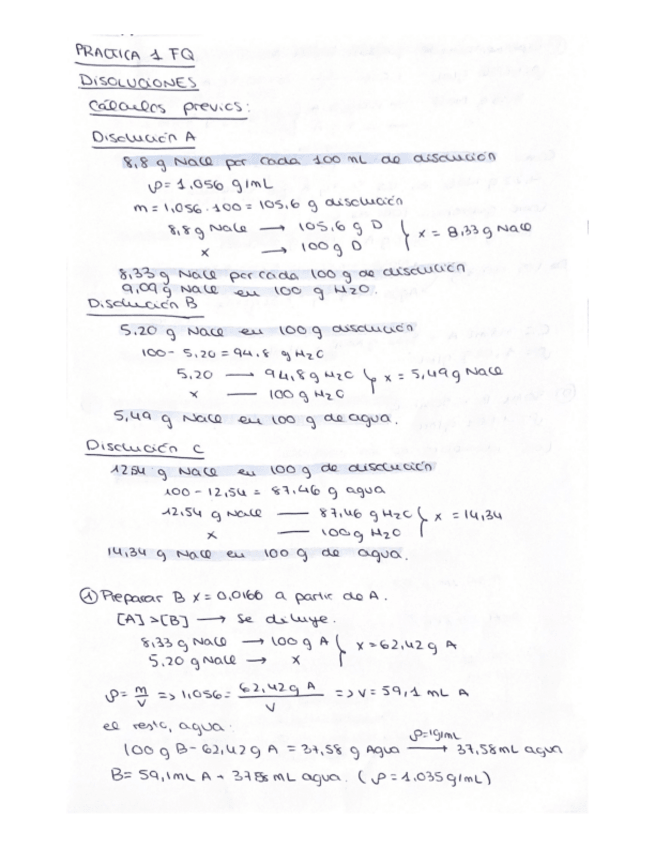 PRACTICA 1 FQ
DISOLUCIONES
Cálculos previos:
Disolución A
8,8 g NaCl por cada 100 mL de disolución
ρ= 1,056 g/mL
m = 1,056 · 100 = 105,6 g disolución
8,8 g NaCl → 105,6 g D } x = 8,33 g NaCl
x → 100 g D
8,33 g NaCl por cada 100 g de disolución
9,09 g NaCl en 100 g H2O.
Disolución B
5,20 g NaCl en 100 g disolución
100 - 5,20 = 94,8 g H2O
5,20 — 94,8 g H2O } x = 5,49 g NaCl
x — 100 g H2O
5,49 g NaCl en 100 g de agua.
Disolución C
1254 g NaCl en 100 g de disolución
100 - 12,54 = 87,46 g agua
12,54 g NaCl — 87,46 g H2O } x = 14,34
x — 100 g H2O
14,34 g NaCl en 100 g de agua.
① Preparar B x = 0,0166 a partir de A.
[A] > [B] → se diluye.
8,33 g NaCl → 100 g A } x = 62,42 g A
5,20 g NaCl → x
ρ = m/V => 1,056 = 62,42 g A / V => V = 59,1 mL A
el resto, agua:
100 g B - 62,42 g A = 37,58 g Agua —ρ=1g/mL→ 37,58 mL agua
B = 59,1 mL A + 37,58 mL agua. (ρ = 1,035 g/mL)